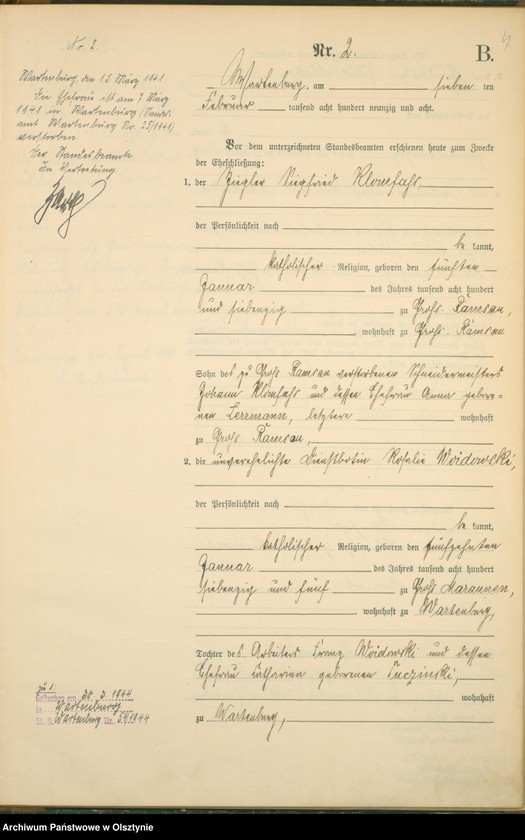 4
Nr. 2.
Nr. 2.
B.
Wartenburg, den 13. März 1941
Die Ehefrau ist am 7. März
1941 in Wartenburg (Standes-
amt Wartenburg Nr. 25/1941)
verstorben
Der Standesbeamte
In Vertretung
Wartenburg, am sieben ten
Februar tausend acht hundert neunzig und acht.
Vor dem unterzeichneten Standesbeamten erschienen heute zum Zwecke
der Eheschließung:
1. der Ziegler Siegfried Klomfaß,
der Persönlichkeit nach
be kannt,
katholischer Religion, geboren den fünften
Januar des Jahres tausend acht hundert
und siebenzig zu Groß Ramsau,
wohnhaft zu Groß Ramsau
Sohn des zu Groß Ramsau verstorbenen Schneidermeisters
Johann Klomfaß und dessen Ehefrau Anna gebore-
nen Lerzmann, letztere wohnhaft
zu Groß Ramsau,
2. die unverehelichte Dienstbotin Rosalie Woidowski,
der Persönlichkeit nach
be kannt,
katholischer Religion, geboren den fünfzehnten
Januar des Jahres tausend acht hundert
siebenzig und fünf zu Groß Maraunen,
wohnhaft zu Wartenburg,
Tochter des Arbeiters Franz Woidowski und dessen
Ehefrau Catharina geborenen Tuczinski,
wohnhaft
zu Wartenburg,
zu 1.
Gestorben am 30. 3. 1944
in Wartenburg
St. A. Wartenburg Nr. 54/1944
Archiwum Państwowe w Olsztynie